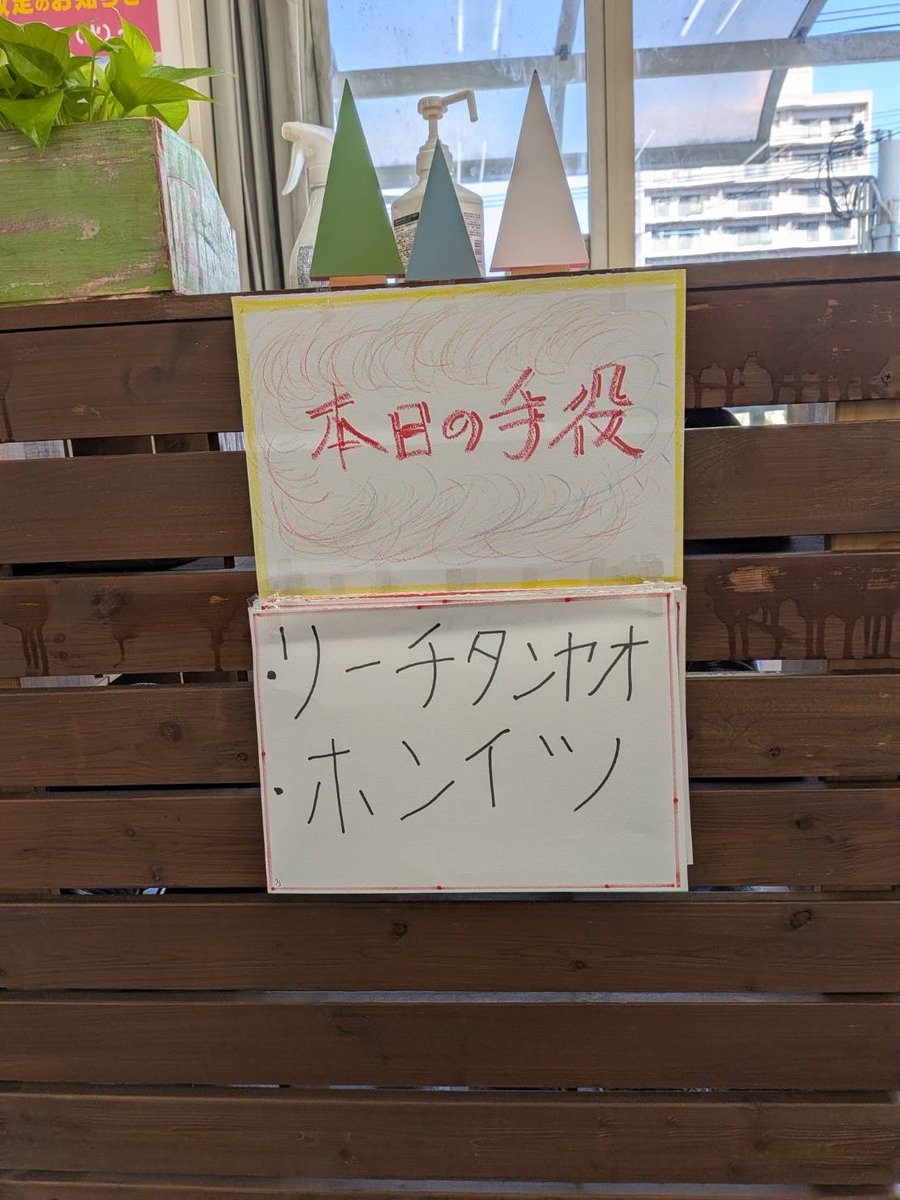 改定のお知らせ
本日の手役
・リーチタンヤオ
・ホンイツ